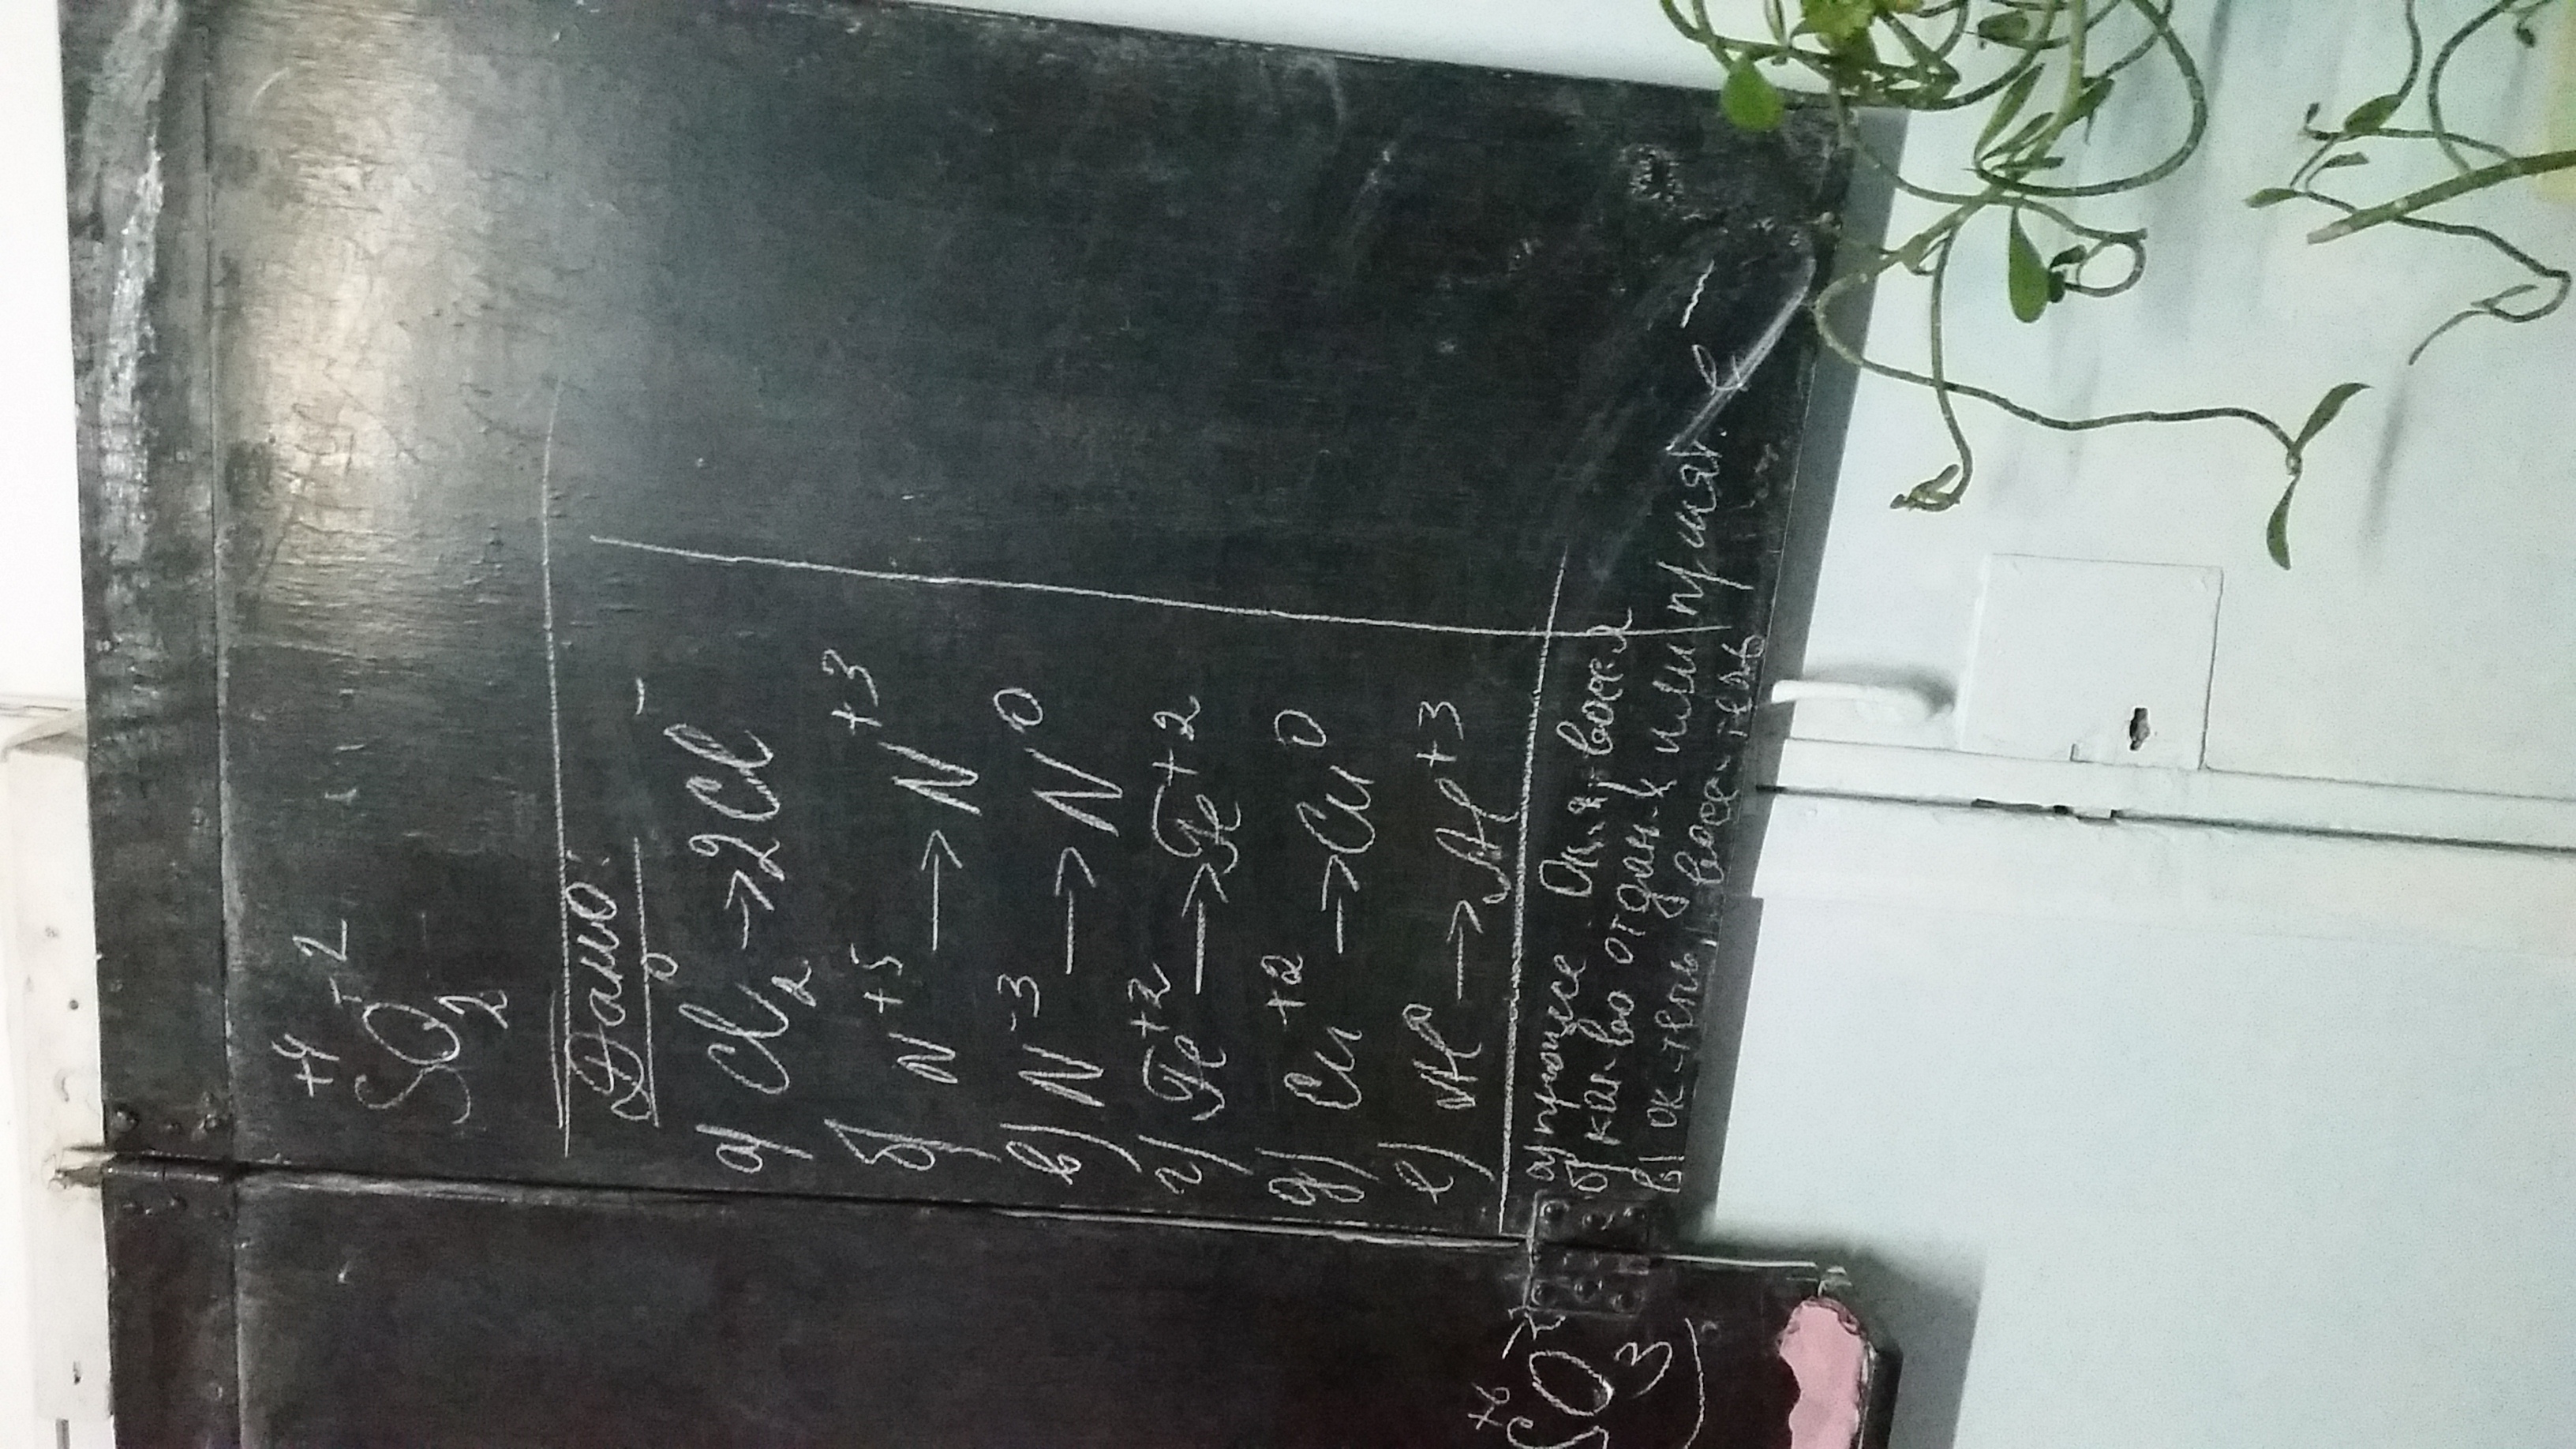 +4 -2
SO2
Дано:
а) Cl2⁰ → 2Cl⁻
б) N⁺⁵ → N⁺³
в) N⁻³ → N⁰
г) Fe⁺² → Fe⁺²
д) Cu⁺² → Cu⁰
е) Al⁰ → Al⁺³
а) процесс
б) кол-во отдан. ē или принят. ē
в) ок-тель, восс-тель
+6 -2
SO3